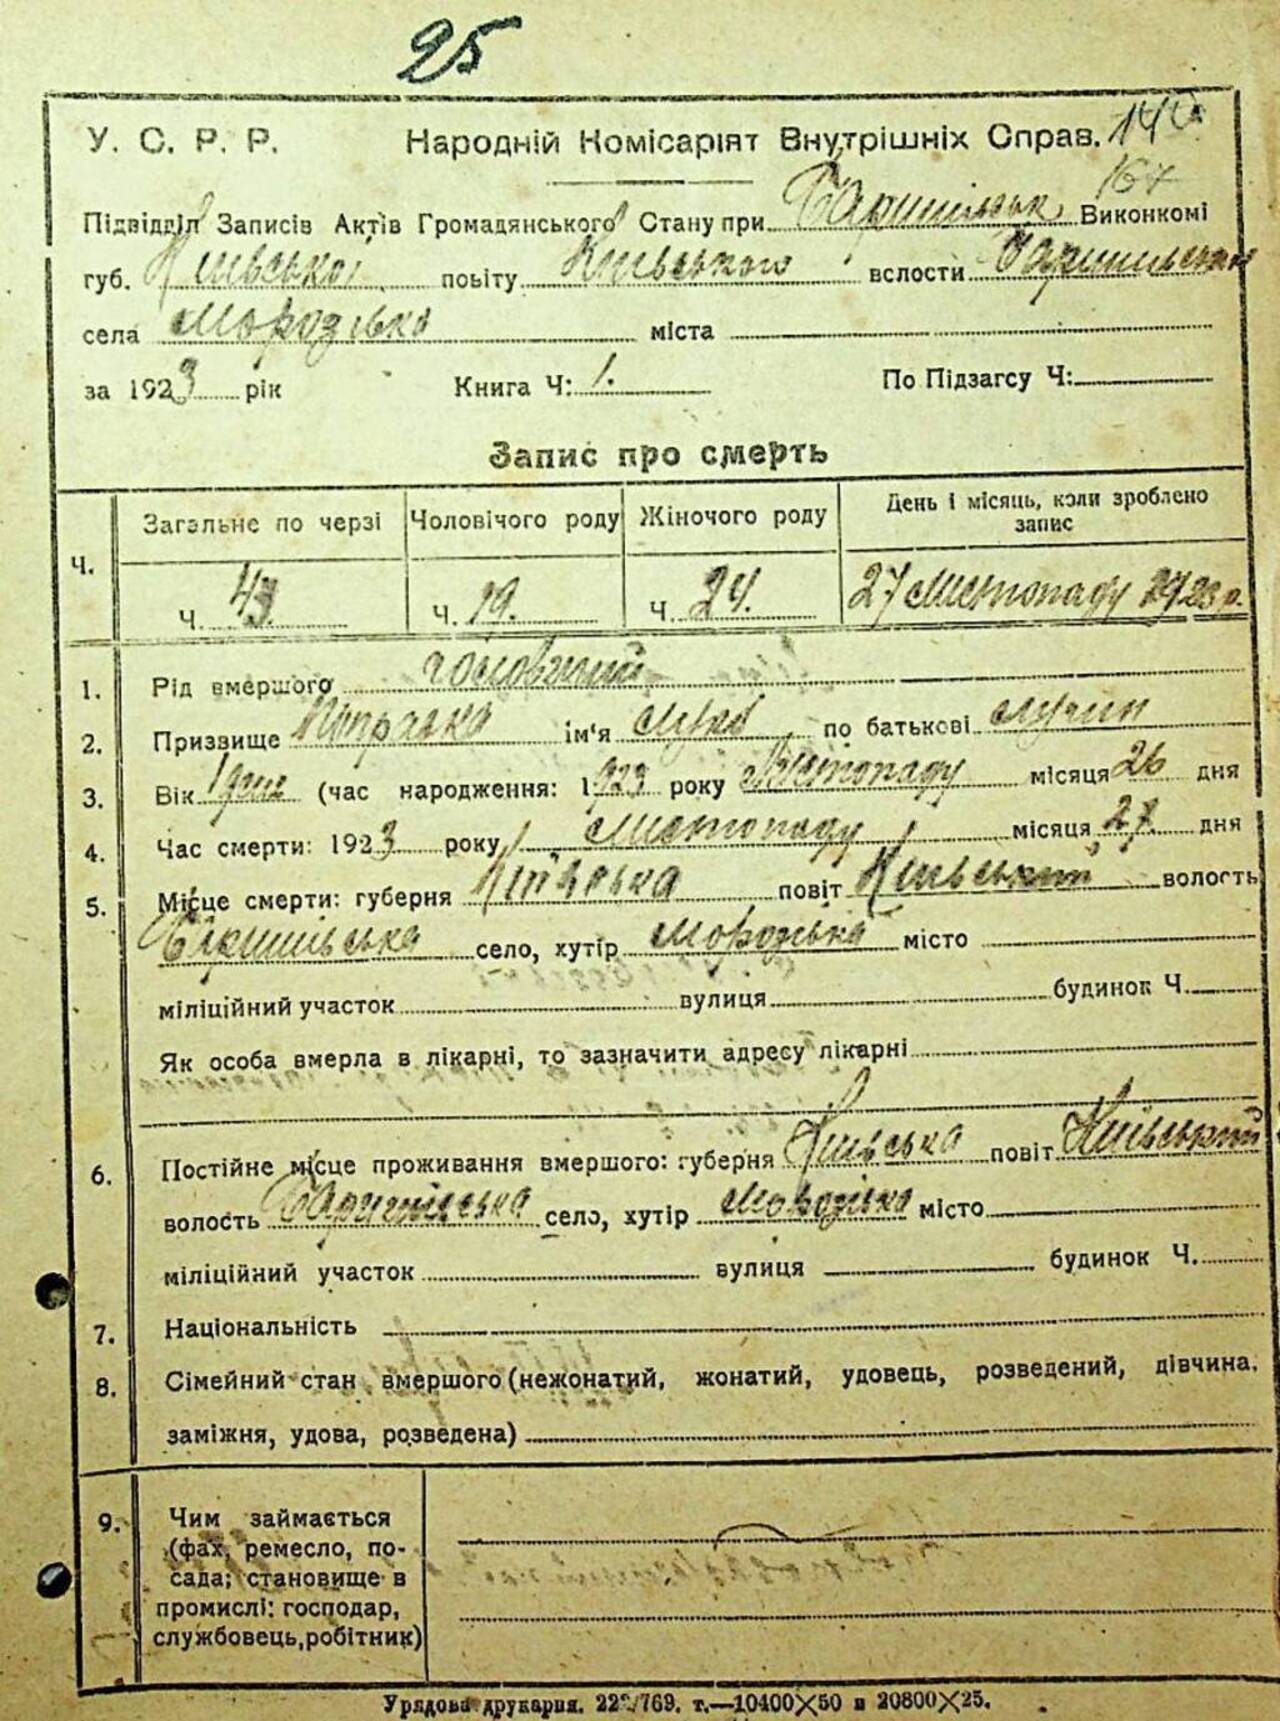 25
У. С. Р. Р. Народній Комісаріят Внутрішніх Справ.
167
Підвідділ Записів Актів Громадянського Стану при Баришівськ Виконкомі
губ. Київської повіту Київського вслости Баришівської
села Морозівка міста
за 1923 рік Книга Ч: 1. По Підзагсу Ч:
Запис про смерть
Ч. Загальне по черзі Чоловічого роду Жіночого роду День і місяць, коли зроблено запис
Ч. 43. Ч. 19. Ч. 24. 27 Листопаду 1923 р.
1. Рід вмершого чоловічий
2. Призвище ім'я Лука по батькові
3. Вік 1 день (час народження: 1923 року Листопаду місяця 26 дня
4. Час смерти: 1923 року Листопаду місяця 27. дня
5. Місце смерти: губерня Київська повіт Київський волость
Баришівська село, хутір Морозівка місто
міліційний участок вулиця будинок Ч.
Як особа вмерла в лікарні, то зазначити адресу лікарні
6. Постійне місце проживання вмершого: губерня Київська повіт Київський
волость Баришівська село, хутір Морозівка місто
міліційний участок вулиця будинок Ч.
7. Національність
8. Сімейний стан вмершого (нежонатий, жонатий, удовець, розведений, дівчина,
заміжня, удова, розведена)
9. Чим займається
(фах, ремесло, по-
сада; становище в
промислі: господар,
службовець, робітник)
Урядова друкарня. 769. т.—10400×50 и 20800×25.